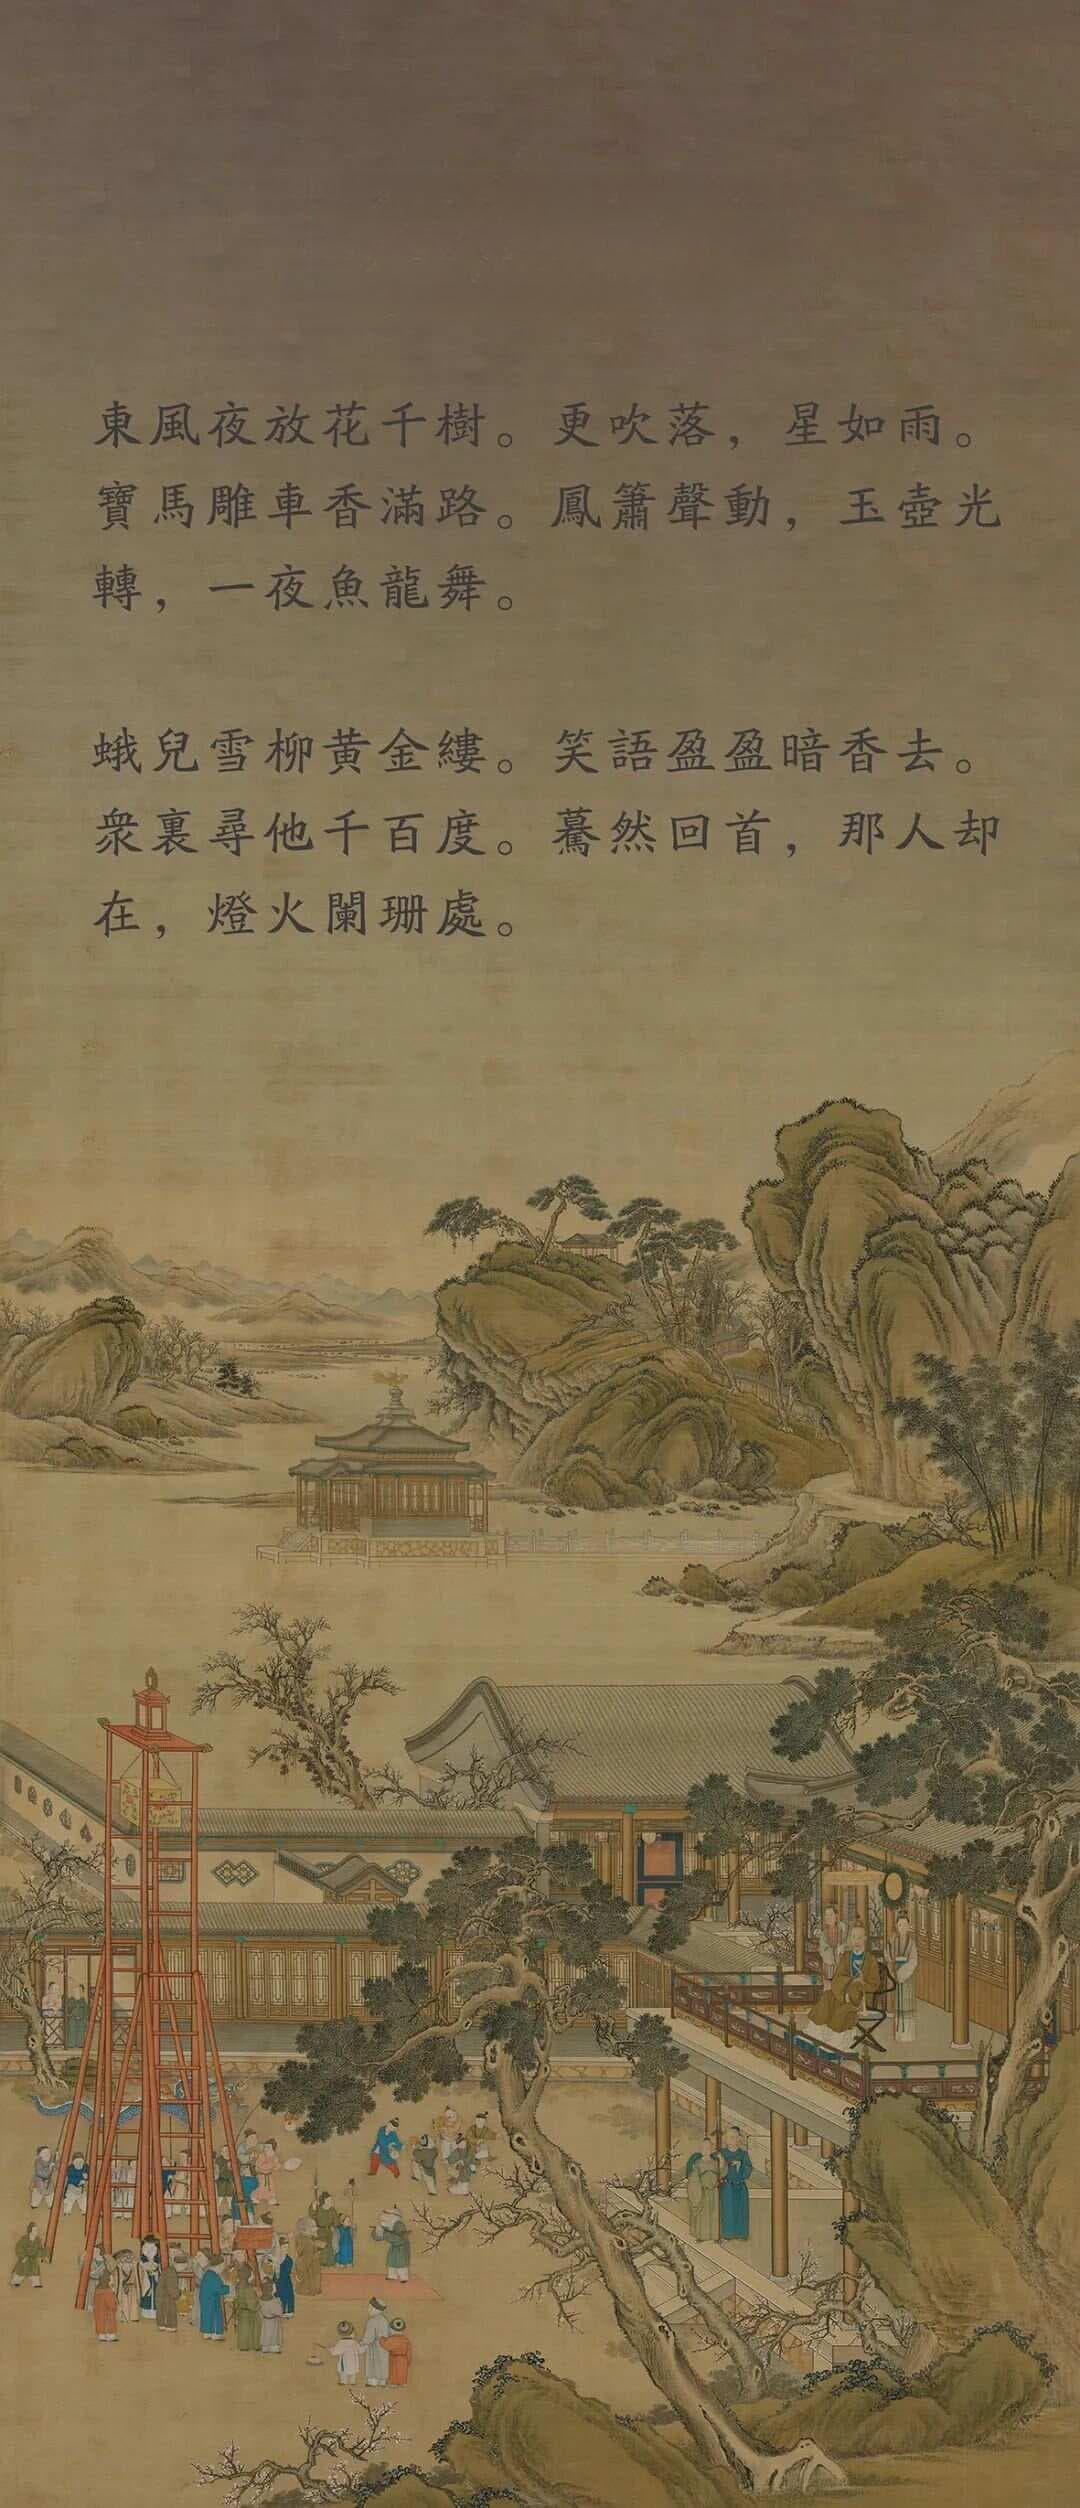 東風夜放花千樹。更吹落，星如雨。
寶馬雕車香滿路。鳳簫聲動，玉壺光
轉，一夜魚龍舞。
蛾兒雪柳黃金縷。笑語盈盈暗香去。
衆裏尋他千百度。驀然回首，那人却
在，燈火闌珊處。